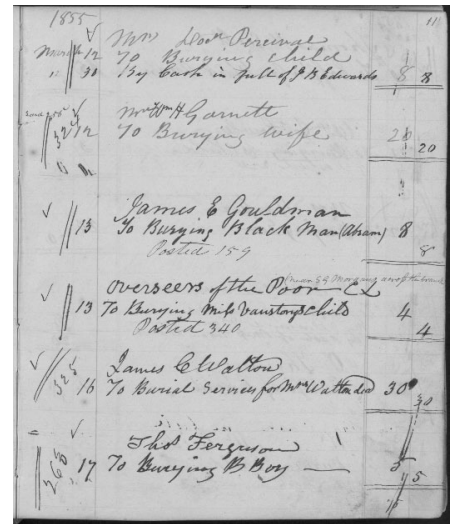 1855 111
March 12 Mrs Doct Percival
To Burying Child 8
" 31 By Cash in full of J B Edwards 8
Mr Wm H Garnett
325 12 To Burying wife 20
20
James E Gouldman
13 To Burying Black Man (Abram) 8
Posted 159 8
Overseers of the Poor
13 To Burying Miss Child 4
Posted 340 4
James C Walton
325 16 To Burial Services for Mrs Walton 30
30
Thos Ferguson
263 17 To Burying B Boy — 5
5